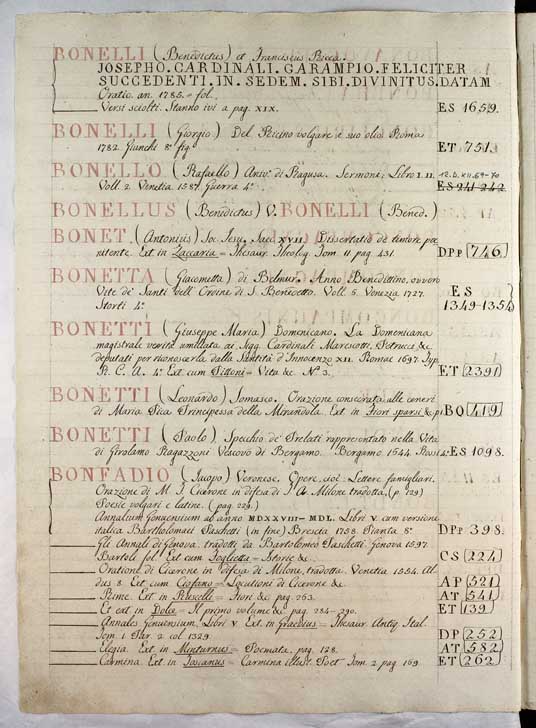 BONELLI (Benedictus) et Franciscus Ricca.
JOSEPHO. CARDINALI. GARAMPIO. FELICITER
SUCCEDENTI. IN. SEDEM. SIBI. DIVINITUS. DATAM
Oratio. an. 1785. = fol.
Versi sciolti. Stanno ivi a pag. XIX. ES 1659.
BONELLI (Giorgio) Del Ricino volgare e suo olio. Roma
1782. Giunchi 8° fig. ET 751.
BONELLO (Rafaello) Arciv. di Ragusa. Sermone: Libro I. II. 12. D. XII. 69-70
Voll. 2. Venetia. 1587. Guerra 4° ES 241-242
BONELLUS (Benedictus) V. BONELLI (Bened.)
BONET. (Antonius) Soc. Jesu. Saec. XVII. Dissertatio de timore poe
nitente. Ext in Zaccaria = Thesaur. Theolog. Tom. 11 pag. 431. DPp 746
BONETTA (Giacometta) di Belmur. Anno Benedittino, ovvero
Vite de' Santi dell' Ordine di S. Benedetto. Voll. 6. Venezia 1727. ES
Storti 4° 1349-1354
BONETTI (Giuseppe Maria) Domenicano. La Domenicana
magistrale verità umiliata ai Sigg. Cardinali Marciotti, Petrucci &
deputati per riconoscerla dalla Santità d'Innocenzo XII. Romae 1697. Typ.
R. C. A. 4° Ext. cum Sittoni = Vita &c. N° 3. ET 2391
BONETTI (Leonardo) Somasco. Orazione consecrata alle ceneri
di Maria Pica Principessa della Mirandola. Ext. in Fiori sparsi & p. BQ 419
BONETTI (Paolo) Specchio de' Prelati rappresentato nella Vita
di Girolamo Ragazzoni Vescovo di Bergamo. Bergamo. 1644. Rossi 4° ES 1098.
BONFADIO (Jacopo) Veronese. Opere, cioè. Lettere famigliari.
Orazione di M. T. Cicerone in difesa di T. A. Milone tradotta, (p. 129)
Poesie volgari e latine. (pag. 229.)
Annalium Genuensium ab anno MDXXVIII - MDL. Libri V. cum versione
italica Bartholomaei Paschetti (in fine) Brescia 1758. Pianta 8° DPp 398.
Gli Annali di Genova, tradotti da Bartolomeo Paschetti. Genova 1597.
Bartoli 4° Ext. cum Foglietta = Istorie &c. CS 224
Oratione di Cicerone in difesa di Milone, tradotta. Venetia 1554. Al
dus 8. Ext. cum Ciofano = Locutioni di Cicerone &c. AP 321
Rime. Ext. in Ruscelli = Fiori & pag. 263. AT 541
Et ext. in Dolce = Il primo volume & pag. 284-290. ET 139
Annales Genuensium, Libri V. Ext. in Graevius = Thesaur. Antiq. Ital.
Tom. 1 Par. 2. col. 1329. DP 252
Elegia. Ext. in Minturnus = Poemata. pag. 128. AT 582
Carmina. Ext. in Toscanus = Carmina illustr. Poet. Tom. 2 pag. 169 ET 262